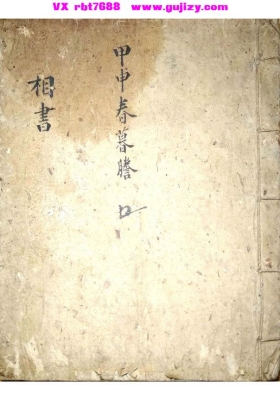 VX rbt7688 www.gujizy.com
甲申春暮謄
相書